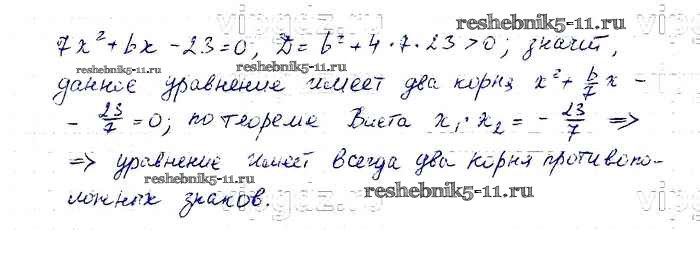 reshebnik5-11.ru
7x² + bx - 23 = 0; D = b² + 4·7·23 > 0; значит,
reshebnik5-11.ru
данное уравнение имеет два корня x² + b/7 x -
- 23/7 = 0; по теореме Виета x₁·x₂ = - 23/7 =>
=> уравнение имеет всегда два корня противопо-
reshebnik5-11.ru reshebnik5-11.ru
ложных знаков.